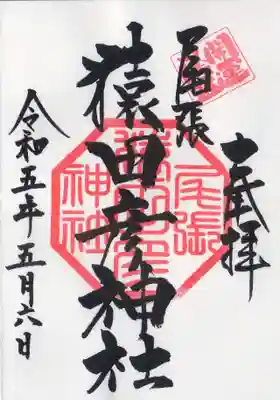 奉拝
開運
尾張
猿田彦神社
尾張
猿田彦
神社
令和五年五月六日